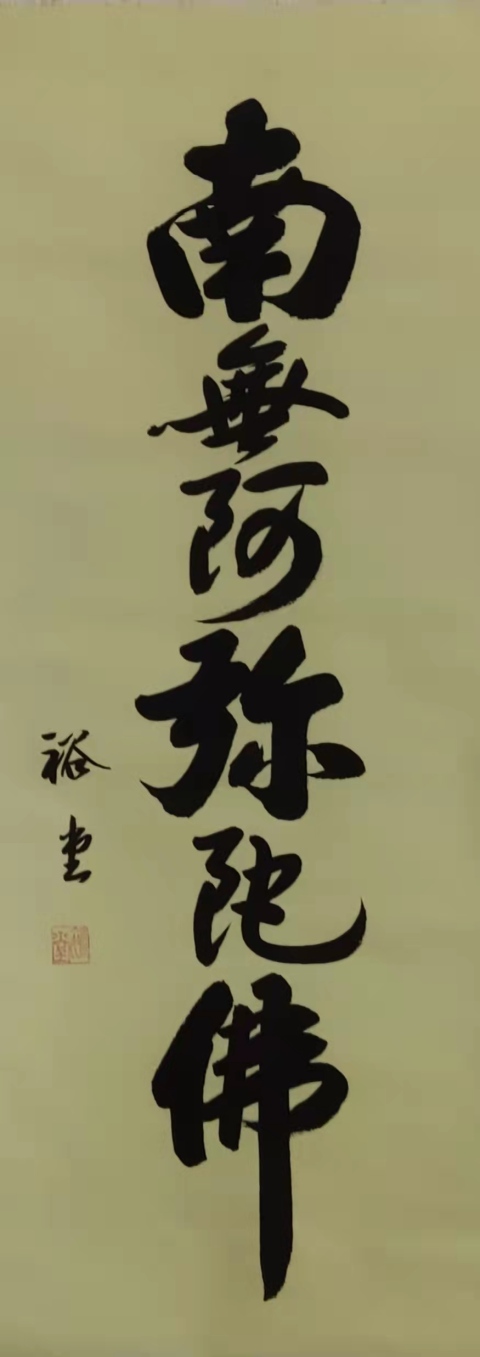 南無阿弥陀佛
裕堂